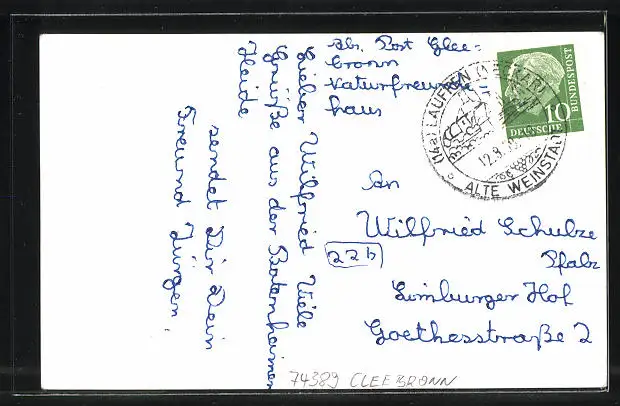 Abs. Post Clee=
bronn
Naturfreunde=
haus
Lieber Wilfried Viele
Grüße aus der Botenheimer
Heide
sendet Dir Dein
Freund Jürgen.
(14a) LAUFFEN (NECKAR)
12.8.
ALTE WEINSTADT
10
DEUTSCHE
BUNDESPOST
An
Wilfried Schulze
22b
Pfalz
Limburger Hof
Goethesstraße 2
74389 CLEEBRONN